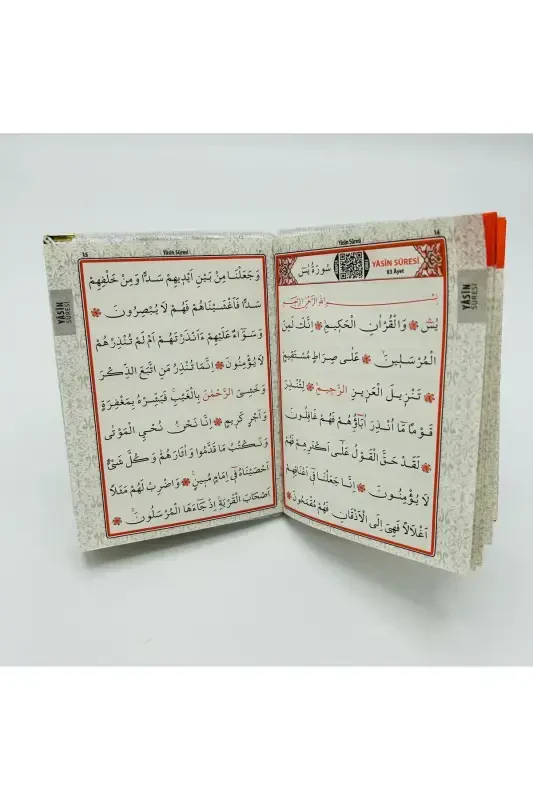 14
Yâsin Sûresi
YÂSİN SÛRESİ
83 Âyet
سُورَةُ يٰسٓ
YÂSİN SÛRESİ
بِسْمِ اللّٰهِ الرَّحْمٰنِ الرَّحِيمِ
يٰسٓ وَالْقُرْاٰنِ الْحَكِيمِ اِنَّكَ لَمِنَ
الْمُرْسَلِينَ عَلٰى صِرَاطٍ مُسْتَقِيمٍ
تَنْزِيلَ الْعَزِيزِ الرَّحِيمِ لِتُنْذِرَ
قَوْمًا مَٓا اُنْذِرَ اٰبَٓاؤُ۬هُمْ فَهُمْ غَافِلُونَ
لَقَدْ حَقَّ الْقَوْلُ عَلٰٓى اَكْثَرِهِمْ فَهُمْ
لَا يُؤْمِنُونَ اِنَّا جَعَلْنَا فِٓي اَعْنَاقِهِمْ
اَغْلَالًا فَهِيَ اِلَى الْاَذْقَانِ فَهُمْ مُقْمَحُونَ
15
Yâsin Sûresi
YÂSİN SÛRESİ
وَجَعَلْنَا مِنْ بَيْنِ اَيْدِيهِمْ سَدًّا وَمِنْ خَلْفِهِمْ
سَدًّا فَاَغْشَيْنَاهُمْ فَهُمْ لَا يُبْصِرُونَ
وَسَوَٓاءٌ عَلَيْهِمْ ءَاَنْذَرْتَهُمْ اَمْ لَمْ تُنْذِرْهُمْ
لَا يُؤْمِنُونَ اِنَّمَا تُنْذِرُ مَنِ اتَّبَعَ الذِّكْرَ
وَخَشِيَ الرَّحْمٰنَ بِالْغَيْبِ فَبَشِّرْهُ بِمَغْفِرَةٍ
وَاَجْرٍ كَرِيمٍ اِنَّا نَحْنُ نُحْيِ الْمَوْتٰى
وَنَكْتُبُ مَا قَدَّمُوا وَاٰثَارَهُمْ وَكُلَّ شَيْءٍ
اَحْصَيْنَاهُ فِٓي اِمَامٍ مُبِينٍ وَاضْرِبْ لَهُمْ مَثَلًا
اَصْحَابَ الْقَرْيَةِ اِذْ جَٓاءَهَا الْمُرْسَلُونَ